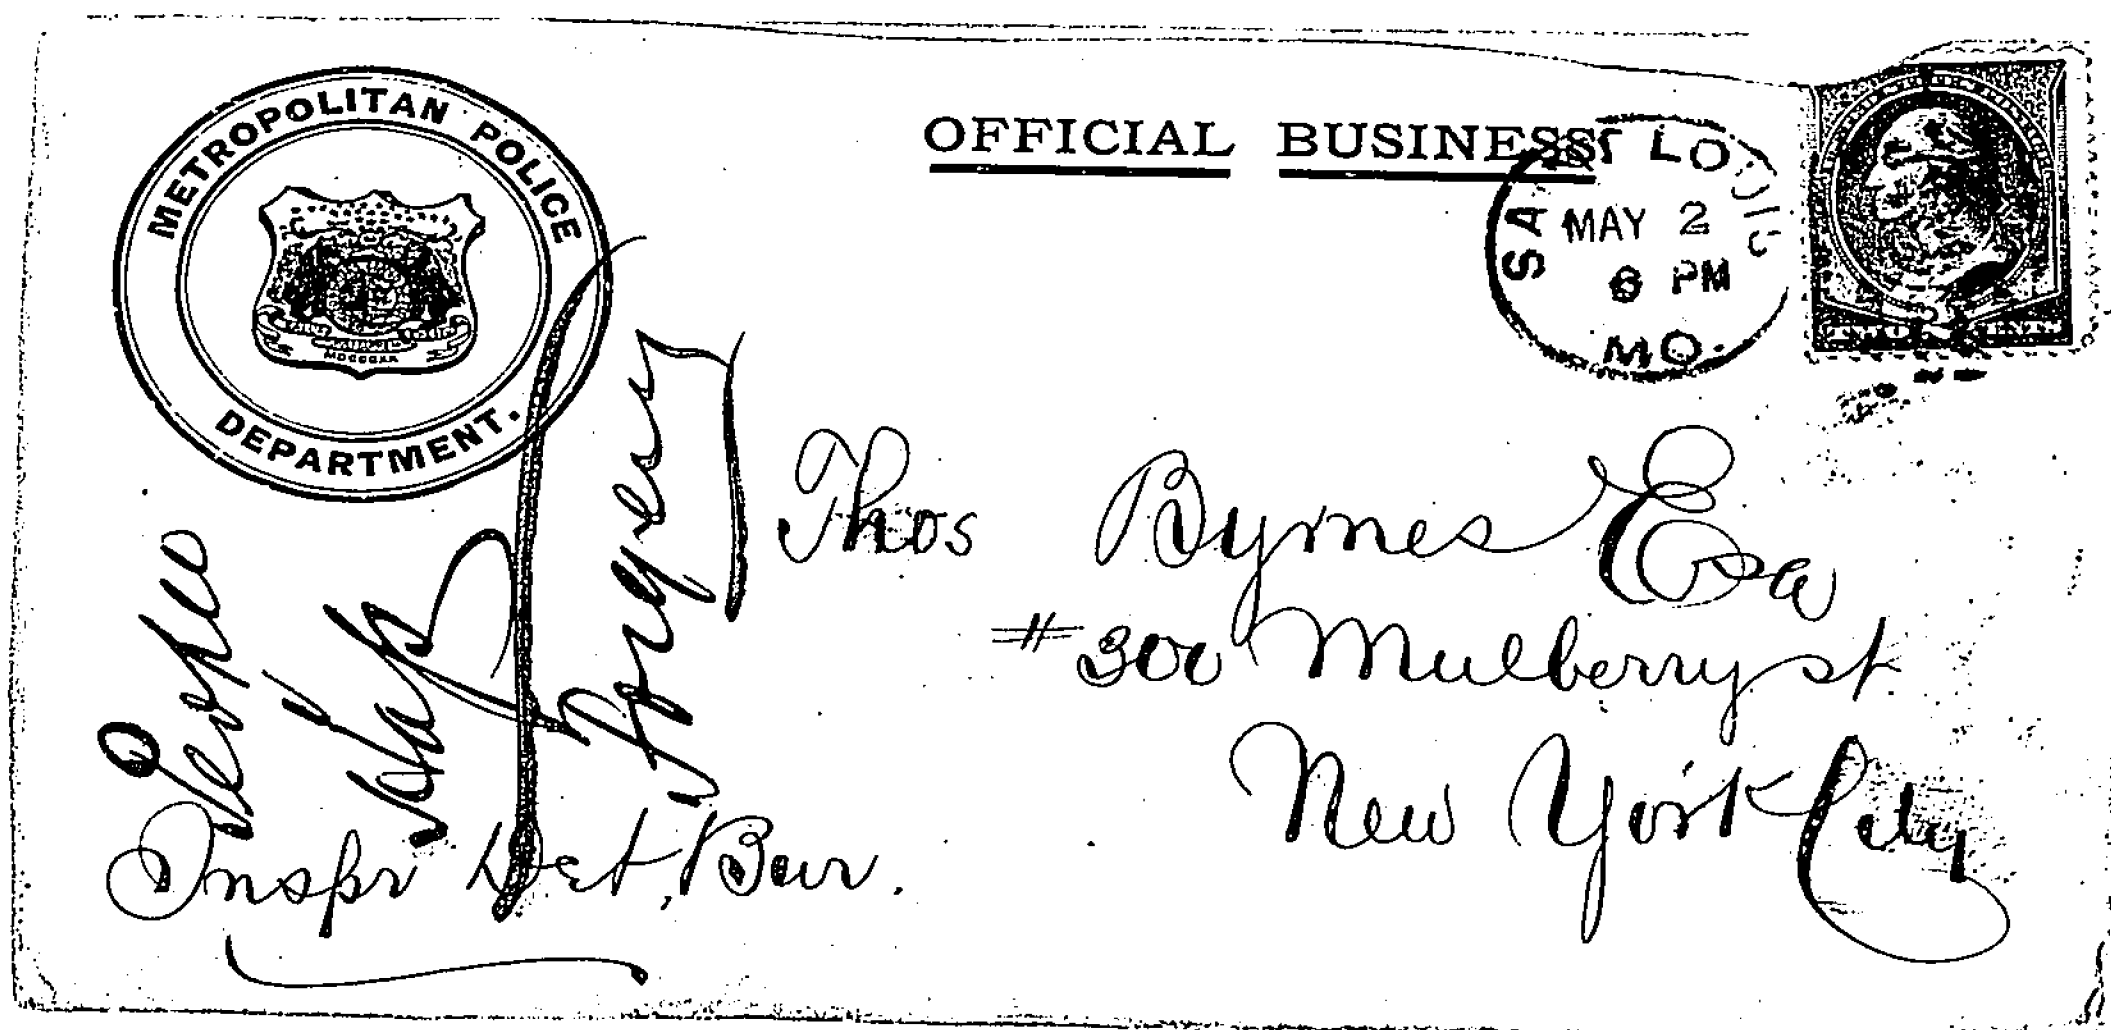 METROPOLITAN POLICE
DEPARTMENT.
OFFICIAL BUSINESS
SAINT LOUIS
MAY 2
6 PM
MO.
Thos Byrnes Esq
#300 Mulberry st
New York City
Inspr Det, Bur.